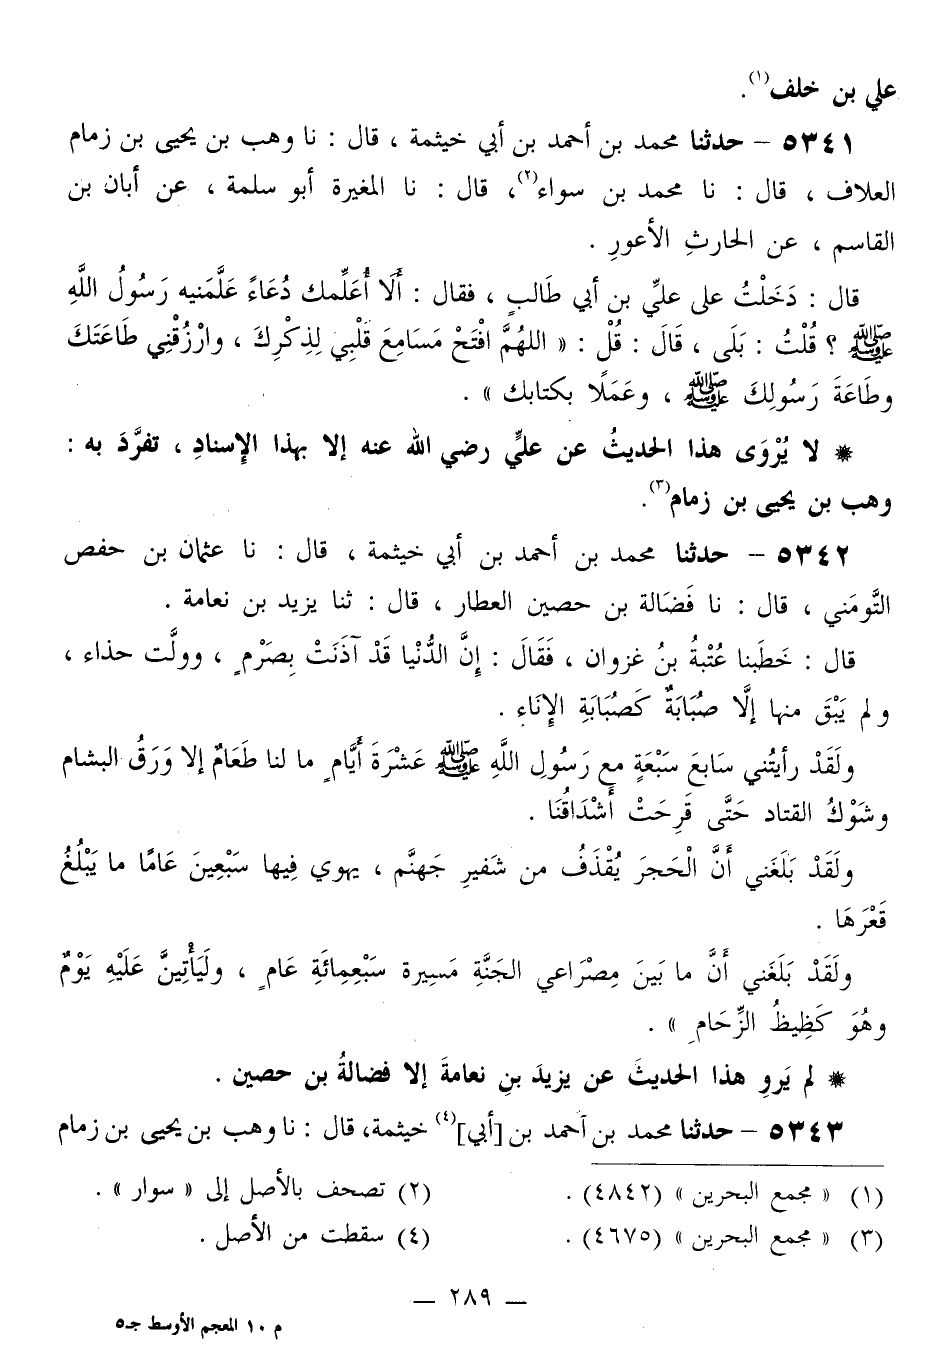 علي بن خلف(١).
٥٣٤١ – حدثنا محمد بن أحمد بن أبي خيثمة ، قال : نا وهب بن يحيى بن زمام
العلاف ، قال : نا محمد بن سواء(٢)، قال : نا المغيرة أبو سلمة ، عن أبان بن
القاسم ، عن الحارثِ الأعورِ .
قال : دَخَلْتُ على عليِّ بن أبي طَالبٍ ، فقال : أَلَا أُعَلِّمك دُعَاءً عَلَّمَنيه رَسُولُ اللَّهِ
ﷺ ؟ قُلْتُ : بَلَى ، قَالَ : قُلْ : « اللهُمَّ افْتَحْ مَسَامِعَ قَلْبِي لِذِكْرِكَ ، وارْزُقْنِي طَاعَتَكَ
وطَاعَةَ رَسُولِكَ ﷺ ، وعَمَلًا بكتابك » .
* لا يُرْوَى هذا الحديثُ عن عليٍّ رضي الله عنه إلا بهذا الإِسنادِ ، تفرَّدَ به :
وهب بن يحيى بن زمام(٣).
٥٣٤٢ – حدثنا محمد بن أحمد بن أبي خيثمة ، قال : نا عثمان بن حفص
التُّومَني ، قال : نا فَضَالة بن حصين العطار ، قال : ثنا يزيد بن نعامة .
قال : خَطَبنا عُتْبةُ بنُ غزوان ، فَقَالَ : إِنَّ الدُّنْيا قَدْ آذَنَتْ بِصَرْمٍ ، وولَّت حذاء ،
ولم يَبْقَ منها إِلَّا صُبَابَةٌ كَصُبَابَةِ الإِنَاءِ .
ولَقَدْ رأيتُني سَابعَ سَبْعَةٍ مع رَسُولِ اللَّهِ ﷺ عَشْرَةَ أَيَّامٍ ما لنا طَعَامٌ إلا وَرَقُ البشام
وشَوْكُ القتاد حَتَّى قَرِحَتْ أَشْدَاقُنَا .
ولَقَدْ بَلَغَني أَنَّ الْحَجرَ يُقْذَفُ من شَفيرِ جَهنَّم ، يهوي فِيها سَبْعِينَ عَامًا ما يَبْلُغُ
قَعْرَهَا .
ولَقَدْ بَلَغَني أَنَّ ما بَينَ مِصْرَاعي الجَنَّةِ مَسِيرة سَبْعِمِائَةِ عَامٍ ، ولَيَأْتِينَّ عَلَيْهِ يَوْمٌ
وهُوَ كَظِيظُ الزِّحَامِ » .
* لم يَروِ هذا الحديثَ عن يزيدَ بنِ نعامةَ إلا فضالةُ بن حصين .
٥٣٤٣ – حدثنا محمد بن أحمد بن [أبي](٤) خيثمة، قال : نا وهب بن يحيى بن زمام
(١) « مجمع البحرين » (٤٨٤٢) .
(٢) تصحف بالأصل إلى « سوار » .
(٣) « مجمع البحرين » (٤٦٧٥) .
(٤) سقطت من الأصل .
– ٢٨٩ –
م ١٠ المعجم الأوسط جـ٥